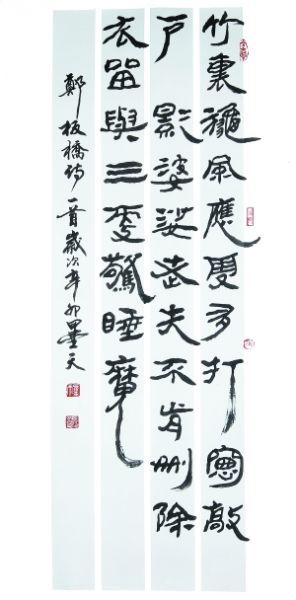 竹裏龝風應更多打窗敲
戶影婆娑老夫不肯刪除
去留與三更驚睡魔
鄭板橋詩一首歲次辛卯墨天